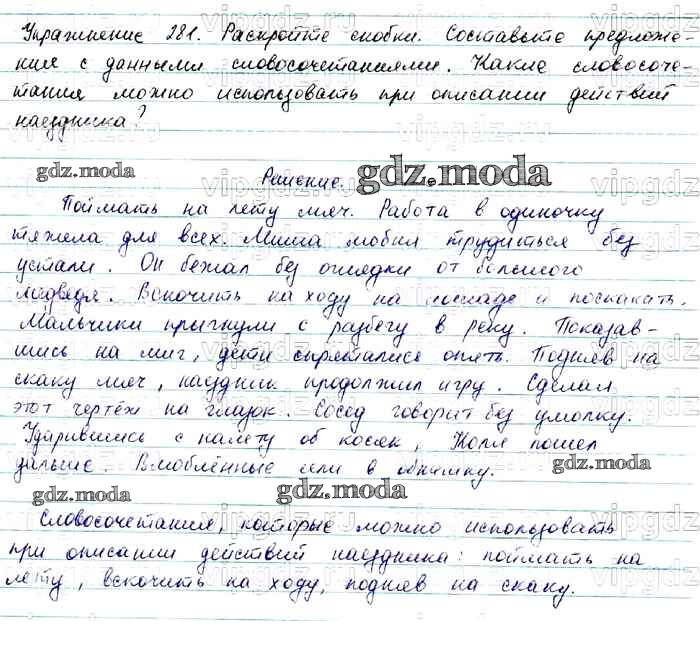 Упражнение 281. Раскройте скобки. Составьте предложе-
ния с данными словосочетаниями. Какие словосоче-
тания можно использовать при описании действий
наездника?
gdz.moda Решение. gdz.moda
Поймать на лету мяч. Работа в одиночку
тяжела для всех. Миша любил трудиться без
устали. Он бежал без оглядки от большого
медведя. Вскочить на ходу на лошаде и поскакать.
Мальчики прыгнули с разбегу в реку. Показав-
шись на миг, дети спрятались опять. Подняв на
скаку мяч, наездник продолжил игру. Сделал
этот чертёж на глазок. Сосед говорит без умолку.
Ударившись с налёту об косяк, Коля пошел
дальше. Влюблённые шли в обнимку.
gdz.moda gdz.moda gdz.moda
Словосочетания, которые можно использовать
при описании действий наездника: поймать на
лету, вскочить на ходу, подняв на скаку.